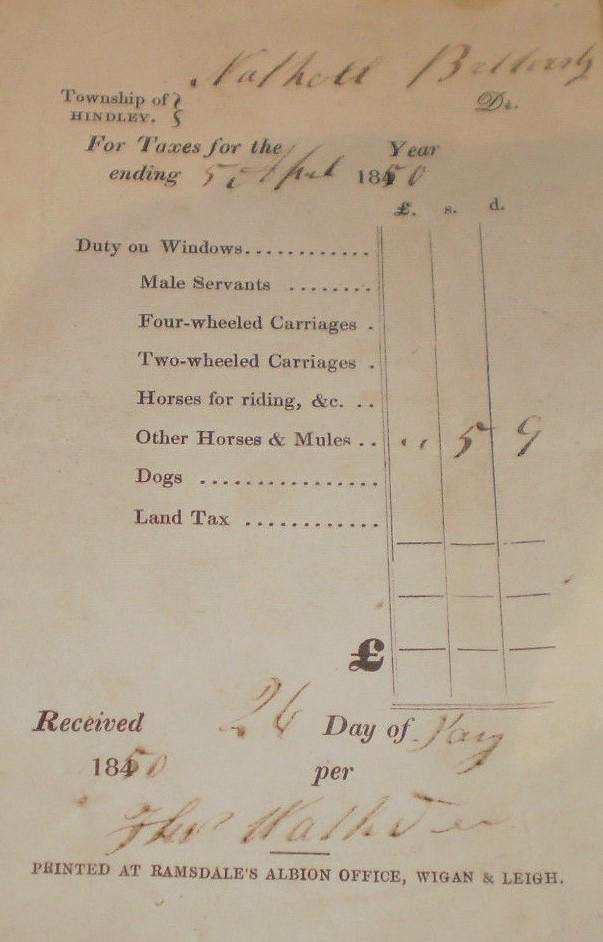 Township of
HINDLEY.
Dr.
For Taxes for the Year
ending 5 April 1850
£. s. d.
Duty on Windows............
Male Servants ........
Four-wheeled Carriages .
Two-wheeled Carriages .
Horses for riding, &c. ..
Other Horses & Mules .. " 5 9
Dogs ................
Land Tax ............
£
Received 26 Day of Jany
1850 per
Thos
PRINTED AT RAMSDALE'S ALBION OFFICE, WIGAN & LEIGH.